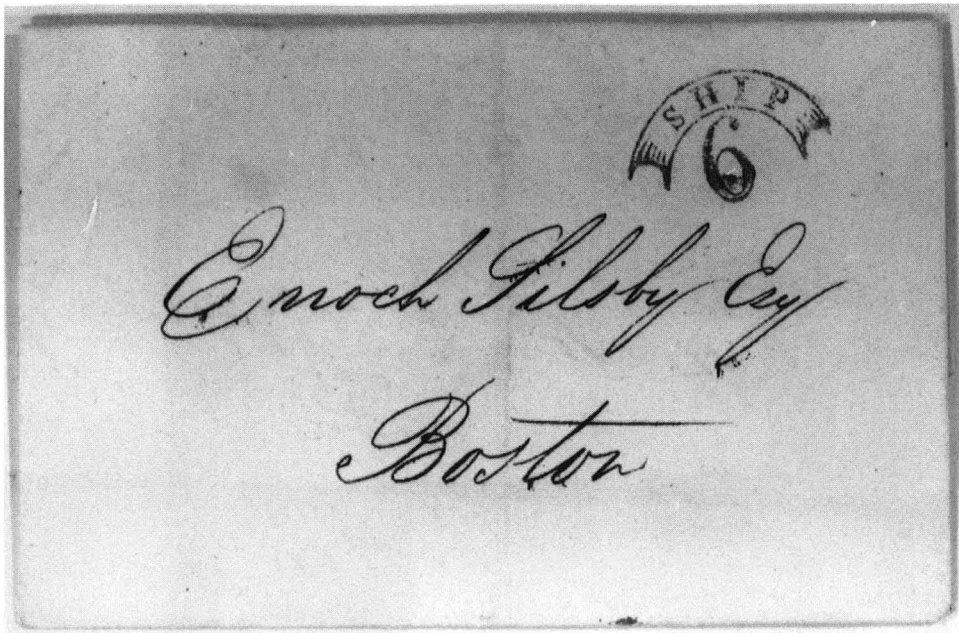 SHIP
6
Enoch Silsby Esq
Boston